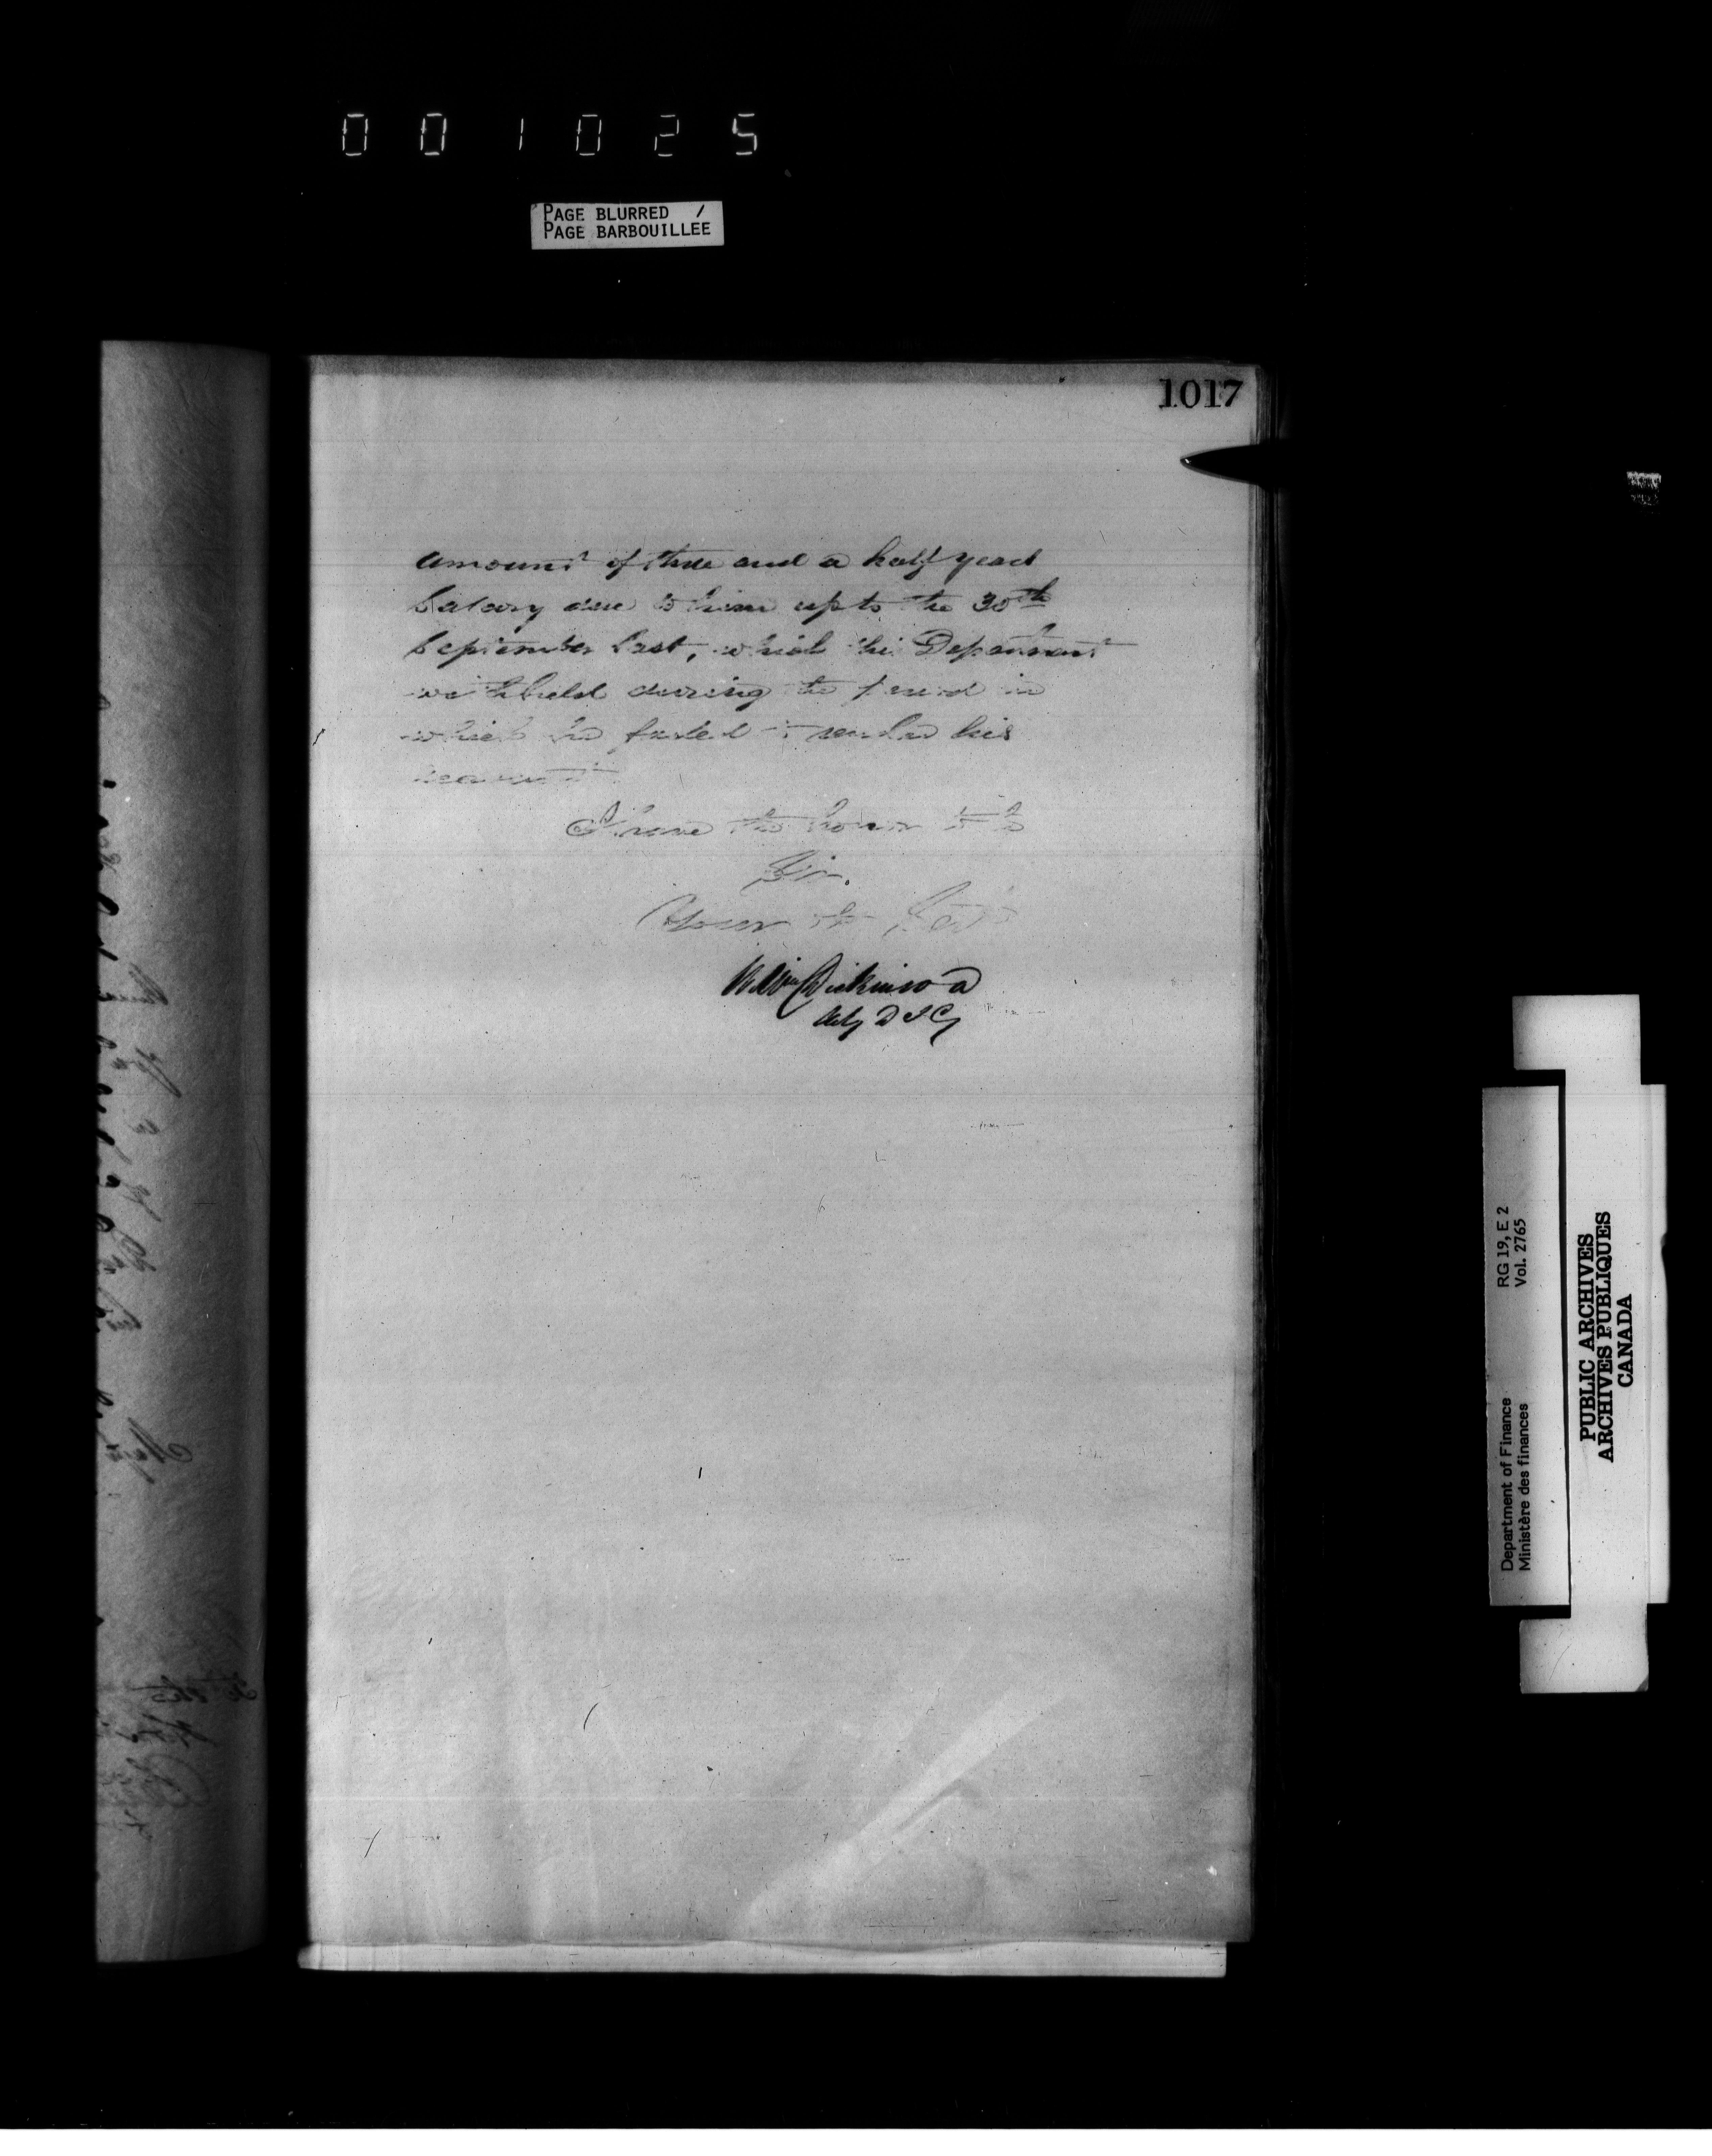 001025
PAGE BLURRED /
PAGE BARBOUILLEE
1017
amount of three and a half years
Salary due to him up to the 30th
September last, which this Department
withheld during the period in
which he failed to render his
accounts
I have the honor to be
Sir.
Your
Wm Dickinson
Actg D I G
Department of Finance RG 19, E 2
Ministère des finances Vol. 2765
PUBLIC ARCHIVES
ARCHIVES PUBLIQUES
CANADA